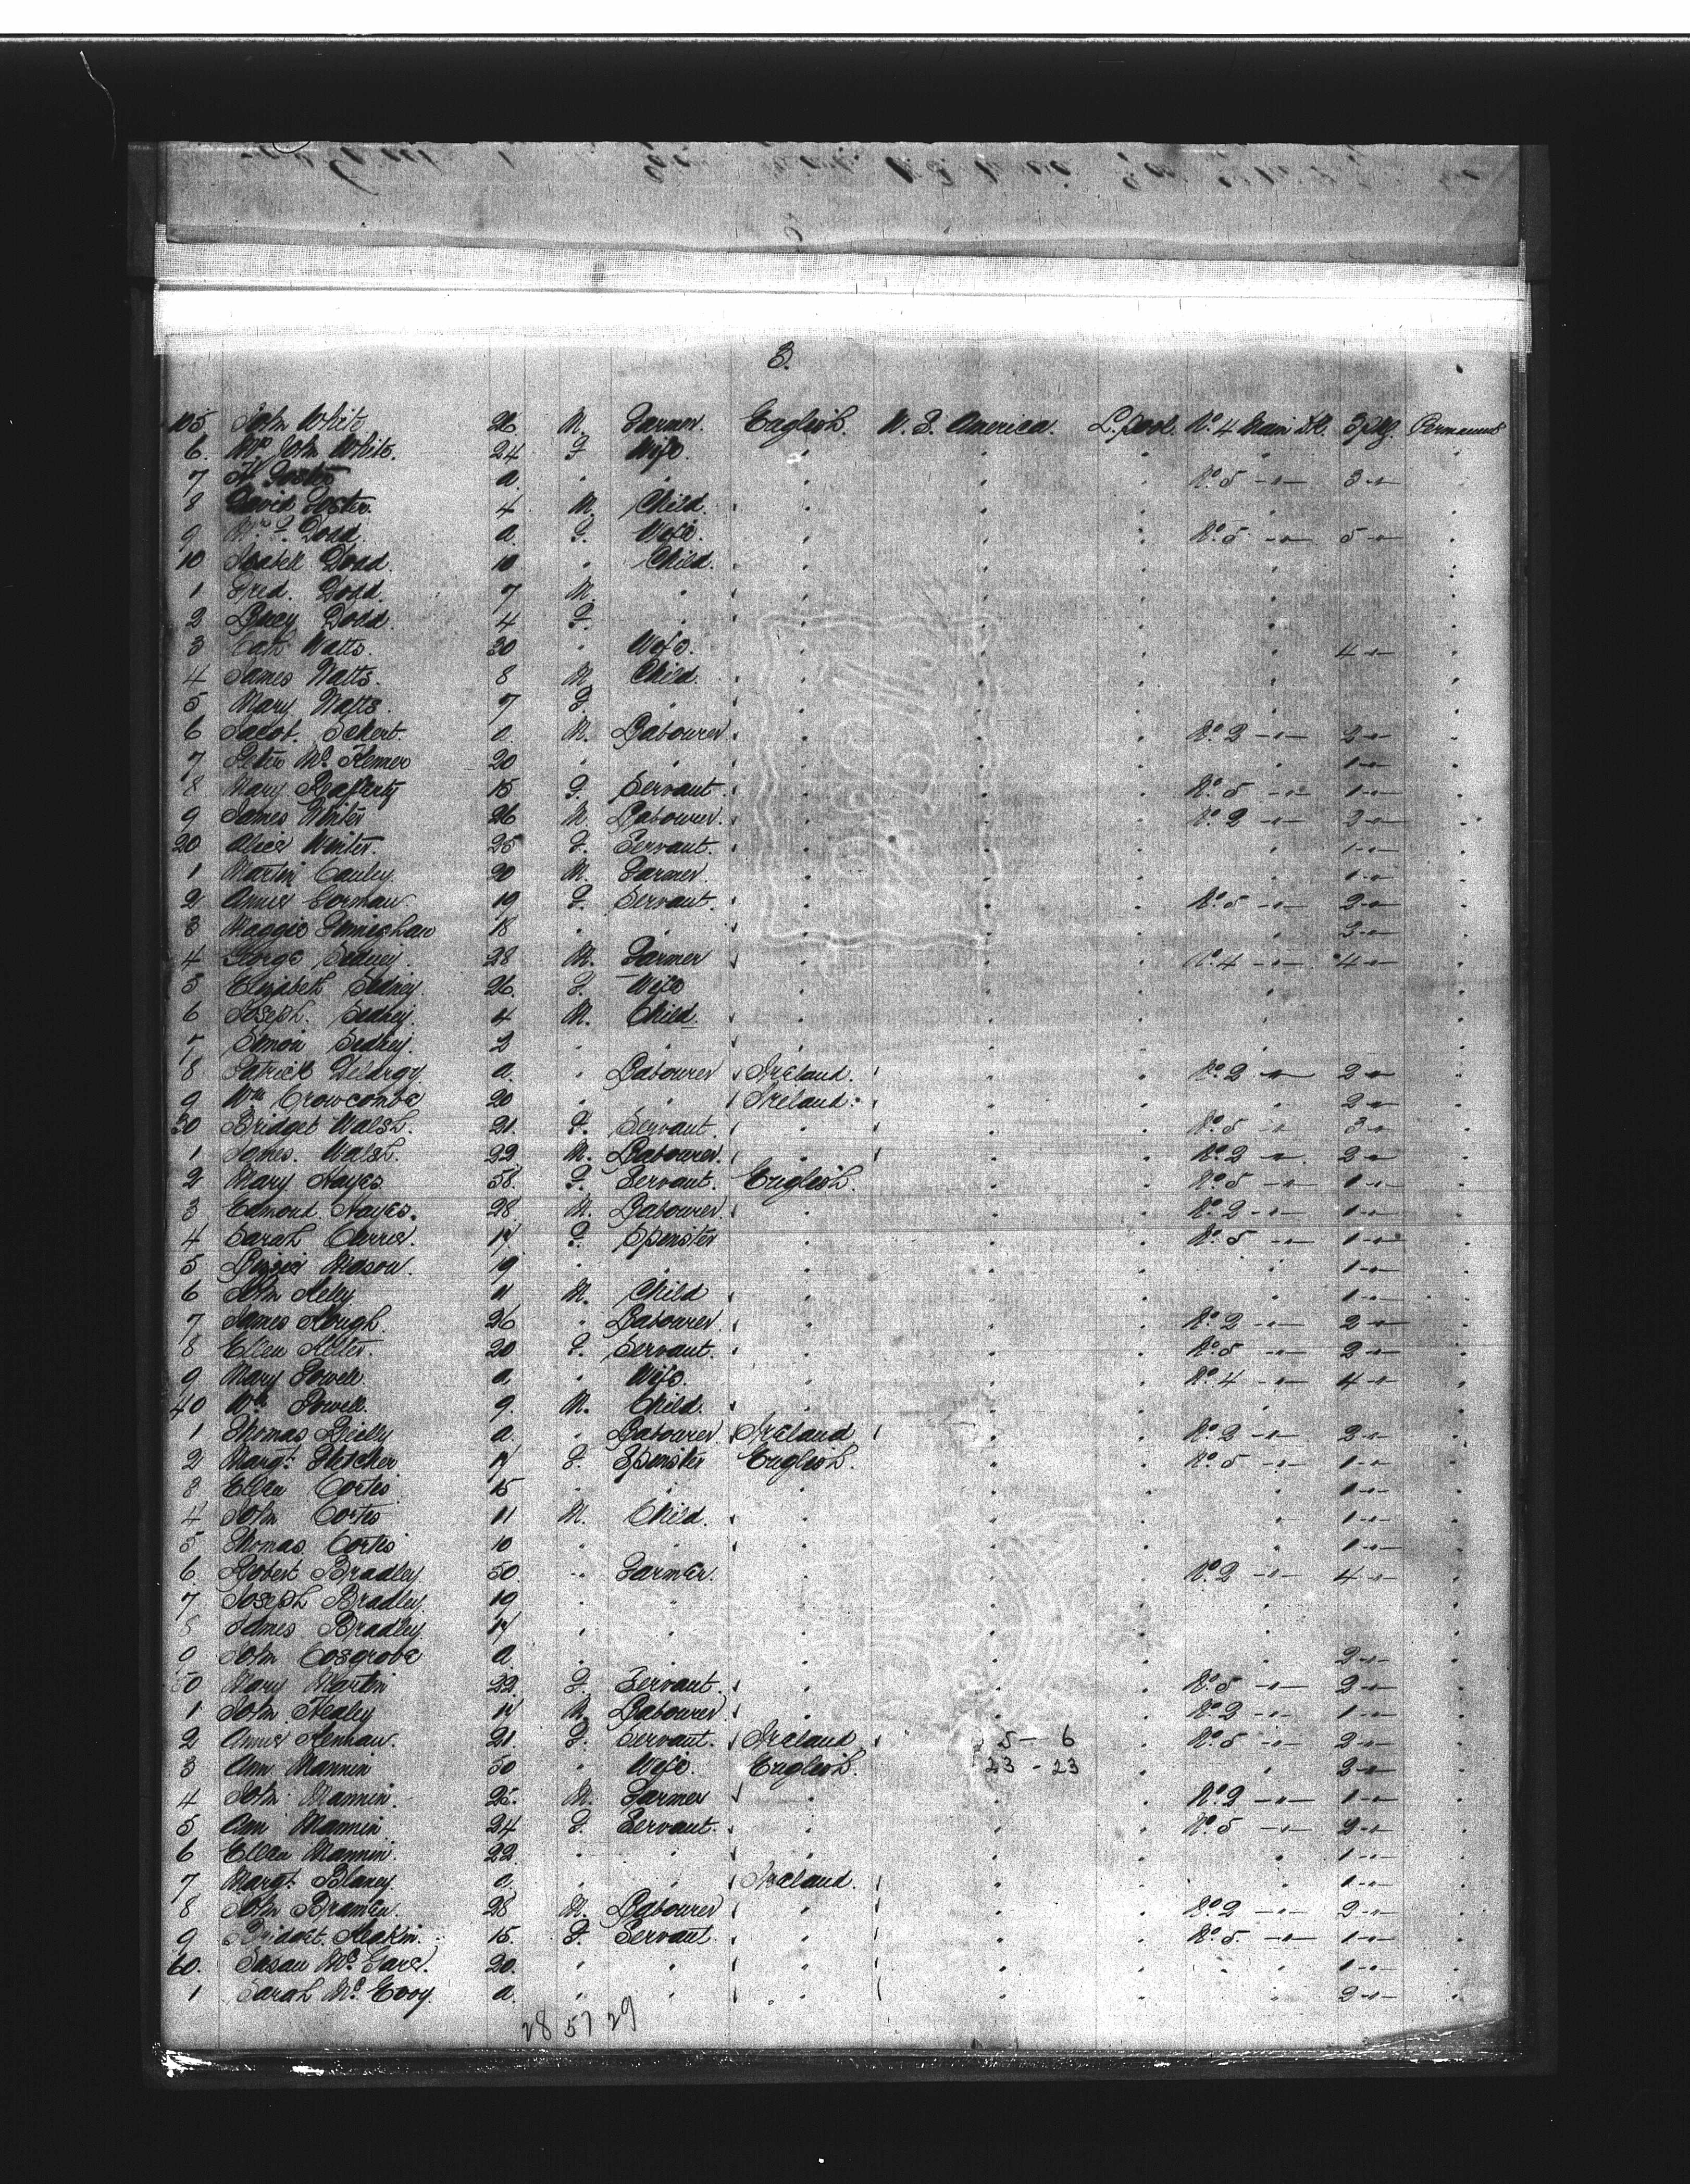 3.
105 John White. 26 M. Farmer. English. U. S. America. L.pool. No. 4 Main Dk. 3 Pkg. Permanent
6. Mrs John White. 24 F Wife.
7 Foster a. " " No. 5 -"- 3 -"-
8 David Foster. 4 M. Child.
9 Mrs F. Dodd. a. F. Wife. No. 5 -"- 5 -"-
10 Isabel Dodd. 10 " Child.
1 Fred. Dodd. 7 M. "
2 Lucy Dodd. 4 F. "
3 Cath Watts. 30 " Wife. 4 -"-
4 James Watts. 8 M. Child.
5 Mary Watts. 7 F. "
6 Jacob. Eckert. a. M. Labourer. No. 2 -"- 2 -"-
7 Peter Mc 20 " " 1 -"-
8 Mary Rafferty 15 F. Servant. No. 5 -"- 1 -"-
9 James Winter 26 M. Labourer. No. 2 -"- 2 -"-
20 Alice Winter. 25 F. Servant. 1 -"-
1 Martin Cauley. 20 M. Farmer. 1 -"-
2 Annie Gorman 19 F. Servant. No. 5 -"- 2 -"-
3 Maggie 18 " " 2 -"-
4 George Sedney. 28 M. Farmer No. 4 -"- 4 -"-
5 Elizabeth Sedney. 26. F. Wife
6 Joseph. Sedney. 4 M. Child
7 Simon Sedney. 2 " "
8 Patrick Delargy. a. " Labourer Ireland. No. 2 -"- 2 -"-
9 Wm Crowcombe 20 " " Ireland. 2 -"-
30 Bridget Walsh. 21. F. Servant. No. 5 -"- 3 -"-
1 James. Walsh. 22 M. Labourer. No. 2 -"- 2 -"-
2 Mary Hayes 58. F. Servant. English. No. 5 -"- 1 -"-
3 Edmond Hayes. 28 M. Labourer. No. 2 -"- 1 -"-
4 Sarah 17 F. Spinster No. 5 -"- 1 -"-
5 19 " " 1 -"-
6 John Kelly 11 M. Child 1 -"-
7 James Keough. 26 " Labourer. No. 2 -"- 2 -"-
8 Ellen 20 F. Servant. No. 5 -"- 2 -"-
9 Mary Powell a. " Wife. No. 4 -"- 4 -"-
40 Wm Powell. 9. M. Child.
1 Thomas Rielly a. " Labourer Ireland No. 2 -"- 2 -"-
2 Margt. Fletcher 17 F. Spinster English. No. 5 -"- 1 -"-
3 Ellen Cortis 15 " " 1 -"-
4 John Cortis 11 M. Child. 1 -"-
5 Thomas Cortis 10 " " 1 -"-
6 Robert Bradley 50. " Farmer. No. 2 -"- 4 -"-
7 Joseph Bradley. 19 " "
8 James Bradley. 17 " "
9 John Cosgrove a. " " 2 -"-
50 Mary Martin 22. F. Servant. No. 5 -"- 2 -"-
1 John Healey 17 M. Labourer. No. 2 -"- 1 -"-
2 Annie 21. F. Servant. Ireland 5 - 6 No. 5 -"- 2 -"-
3 Ann Mannin 50 " Wife. English. 23 - 23 2 -"-
4 John Mannin. 25. M. Farmer No. 2 -"- 1 -"-
5 Ann Mannin 24 F. Servant. No. 5 -"- 2 -"-
6 Ellen Mannin. 22. " " 1 -"-
7 Margt. Blaney. a. " " Ireland. 1 -"-
8 John 28 M. Labourer No. 2 -"- 2 -"-
9 Bridget. Meakin. 15. F. Servant No. 5. -"- 1 -"-
60. Susan Mc 20. " " 1 -"-
1 Sarah Mc Evoy. a. " " 2 -"-
28 57 29